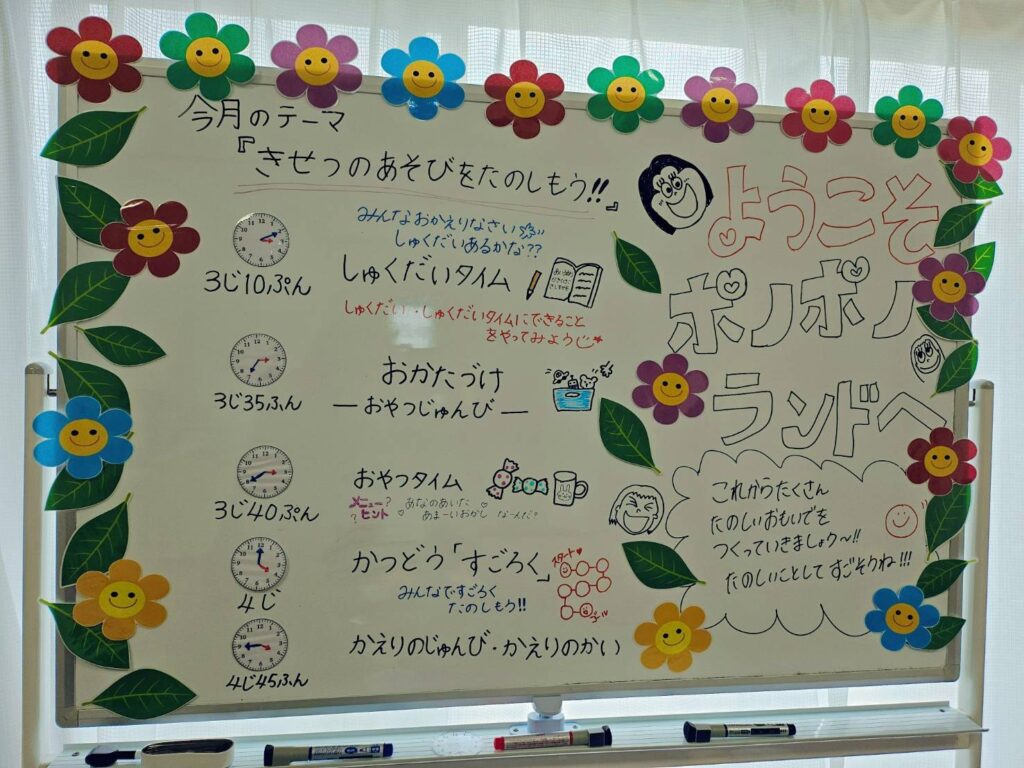 今月のテーマ
『きせつのあそびをたのしもう!!』
みんなおかえりなさい
しゅくだいあるかな??
3じ10ぷん
しゅくだいタイム
しゅくだい・しゅくだいタイムにできること
をやってみよう
3じ35ふん
おかたづけ
ーおやつじゅんびー
3じ40ぷん
おやつタイム
メニュー?
?ヒント
あなのあいた
あまーいおかし なーんだ?
4じ
かつどう「すごろく」
みんなですごろく
たのしもう!!
スタート
ゴール
4じ45ふん
かえりのじゅんび・かえりのかい
ようこそ
ポノポノ
ランドへ
これからたくさん
たのしいおもいでを
つくっていきましょう〜!!
たのしいことして すごそうね!!!